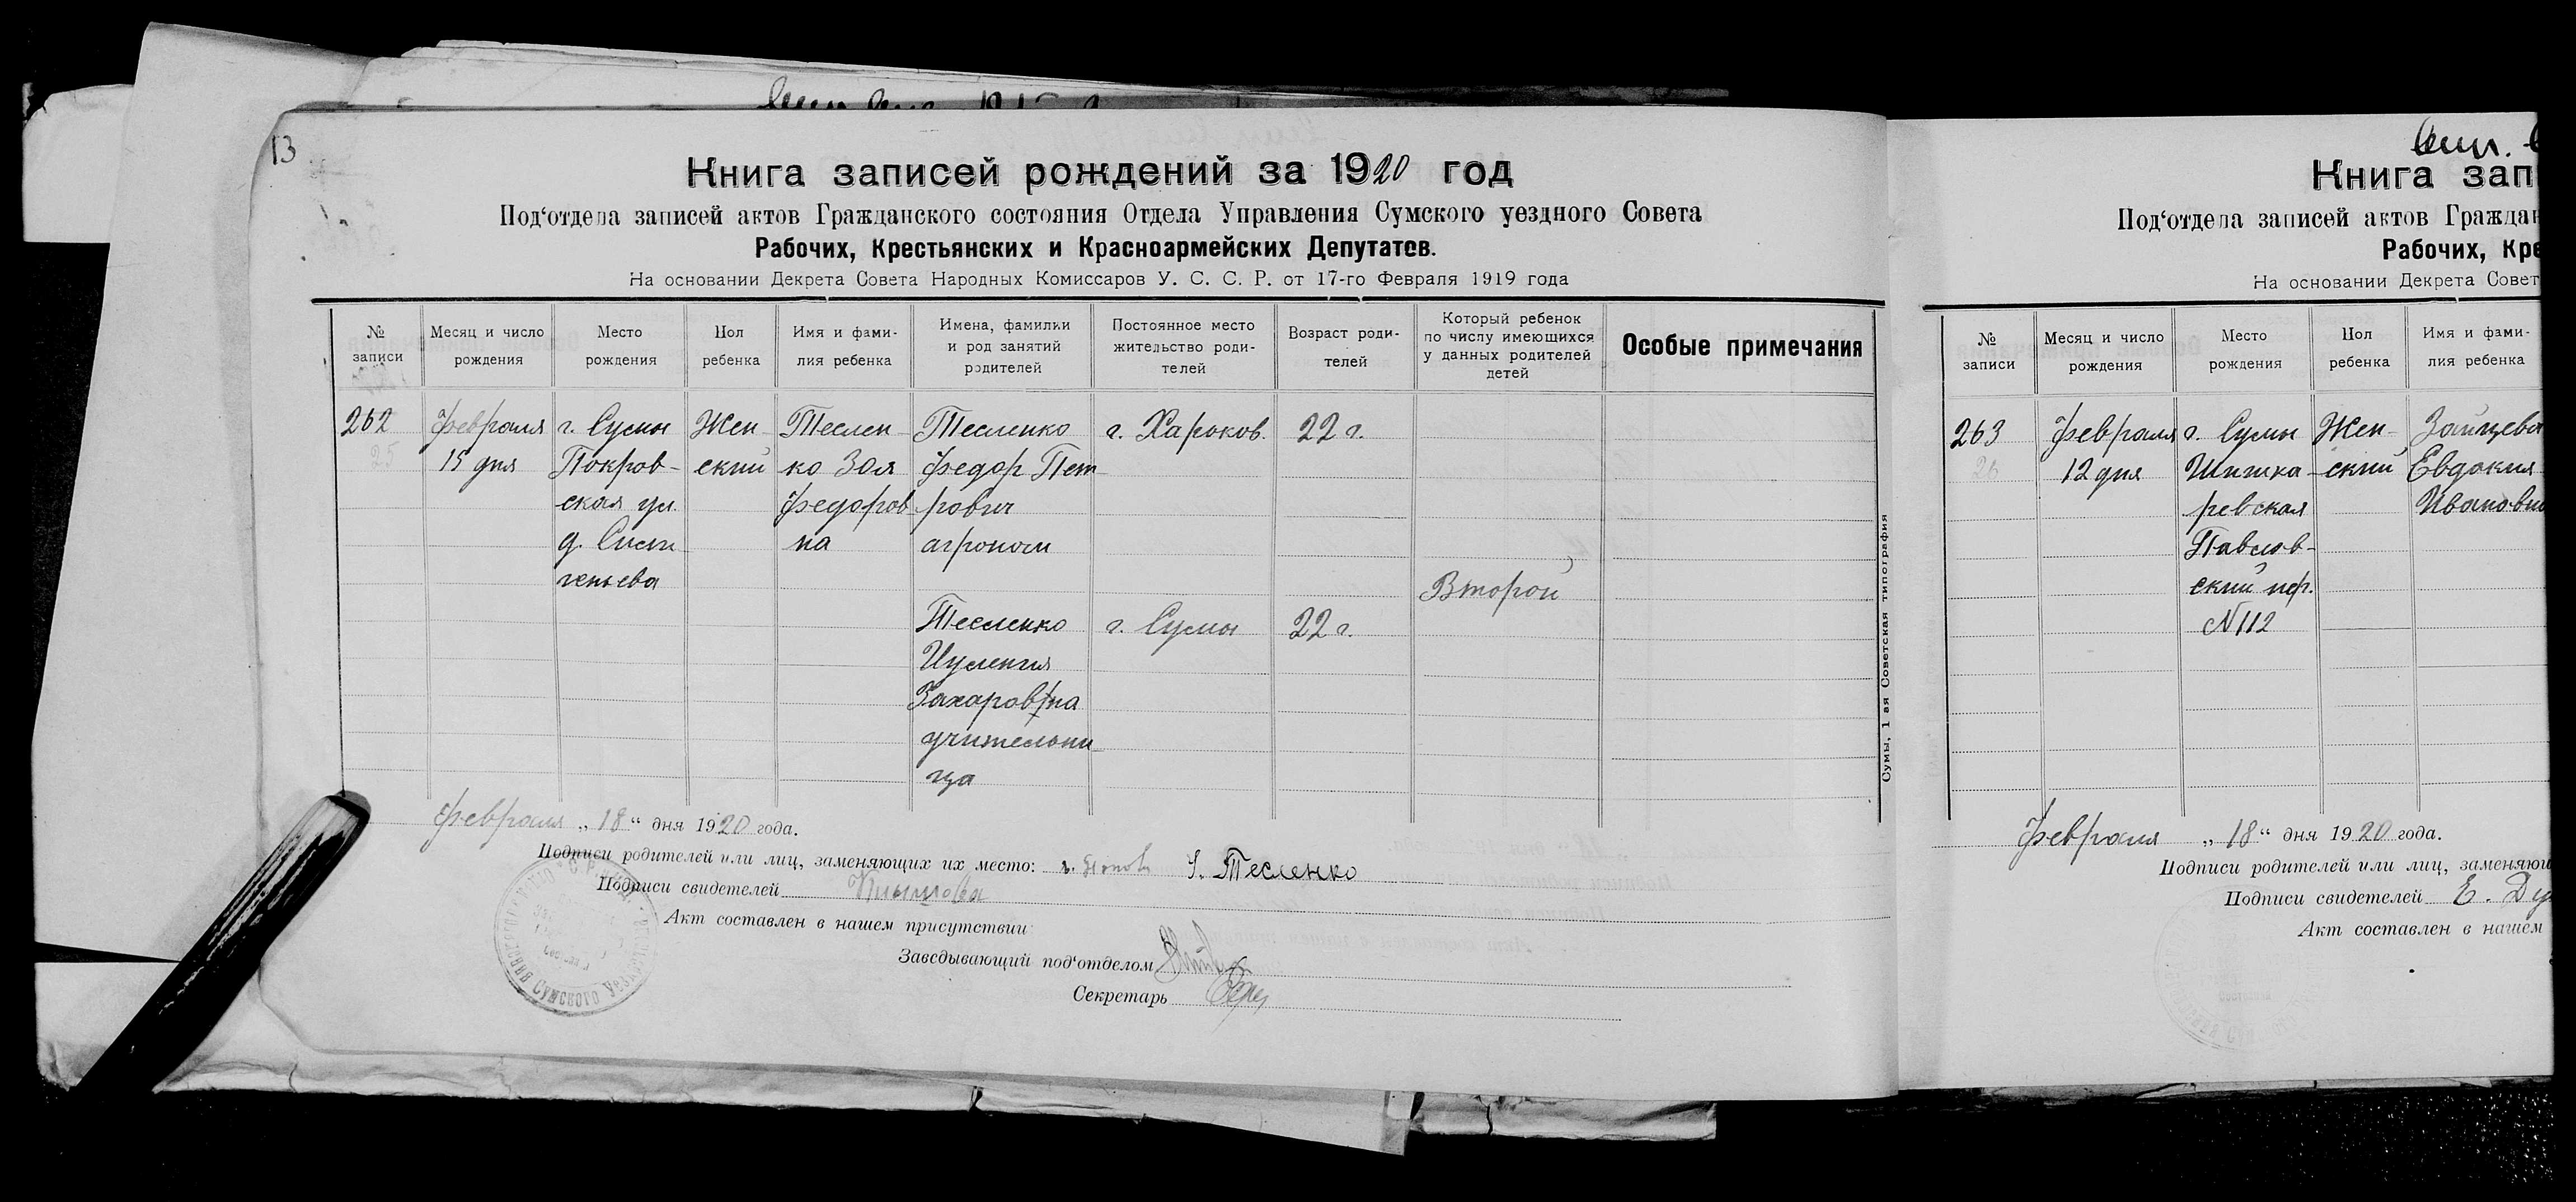 13
Книга записей рождений за 1920 год
Под‘отдела записей актов Гражданского состояния Отдела Управления Сумского уездного Совета
Рабочих, Крестьянских и Красноармейских Депутатов.
На основании Декрета Совета Народных Комиссаров У. С. С. Р. от 17-го Февраля 1919 года
№ записи
Месяц и число рождения
Место рождения
Пол ребенка
Имя и фами-
лия ребенка
Имена, фамилки
и род занятий
родителей
Постоянное место
жительство роди-
телей
Возраст роди-
телей
Который ребенок
по числу имеющихся
у данных родителей
детей
Особые примечания
262
25
Февраля
15 дня
г. Сумы
Покров-
ская ул.
д.
Жен-
ский
Теслен-
ко Зоя
Федоров
на
Тесленко
Федор Пет-
рович
агроном
г. Харьков.
22 г.
Второй
Тесленко
Захаровна
учительни-
ца
г. Сумы
22 г.
Февраля „18“ дня 1920 года.
Подписи родителей или лиц, заменяющих их место: Тесленко
Подписи свидетелей
Акт составлен в нашем присутствии
Заведывающий под‘отделом
Секретарь
Сумы, 1 ая Советская типография
Книга зап
Под‘отдела записей актов Граждан
Рабочих, Кре
На основании Декрета Совет
№ записи
Месяц и число рождения
Место рождения
Пол ребенка
Имя и фами-
лия ребенка
263
26
Февраля
12 дня
г. Сумы
Шишка-
ревская
Павлов-
ский пер.
N 112
Жен-
ский
Зайцева
Евдокия
Февраля „18“ дня 1920 года.
Подписи родителей или лиц, заменяю
Подписи свидетелей Е.
Акт составлен в нашем